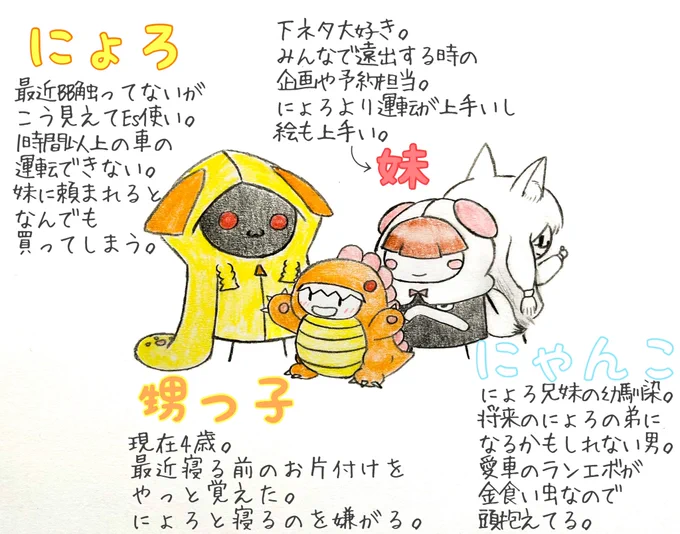 にょろ
最近BB触ってないが
こう見えてEs使い。
1時間以上の車の
運転できない。
妹に頼まれると
なんでも
買ってしまう。
下ネタ大好き。
みんなで遠出する時の
企画や予約担当。
にょろより運転が上手いし
絵も上手い。
妹
甥っ子
現在4歳。
最近寝る前のお片付けを
やっと覚えた。
にょろと寝るのを嫌がる。
にゃんこ
にょろ兄妹の幼馴染。
将来のにょろの弟に
なるかもしれない男。
愛車のランエボが
金食い虫なので
頭抱えてる。